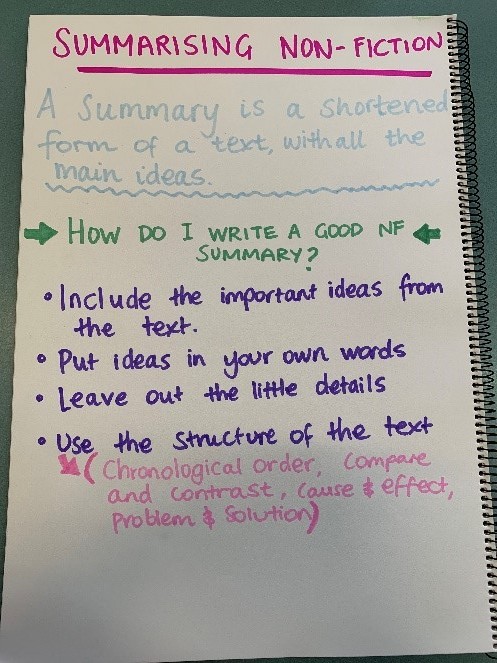 SUMMARISING NON-FICTION
A Summary is a shortened
form of a text, with all the
main ideas.
HOW DO I WRITE A GOOD NF
SUMMARY?
• Include the important ideas from
the text.
• Put ideas in your own words
• Leave out the little details
• Use the structure of the text
(Chronological order, compare
and contrast, cause & effect,
problem & solution)